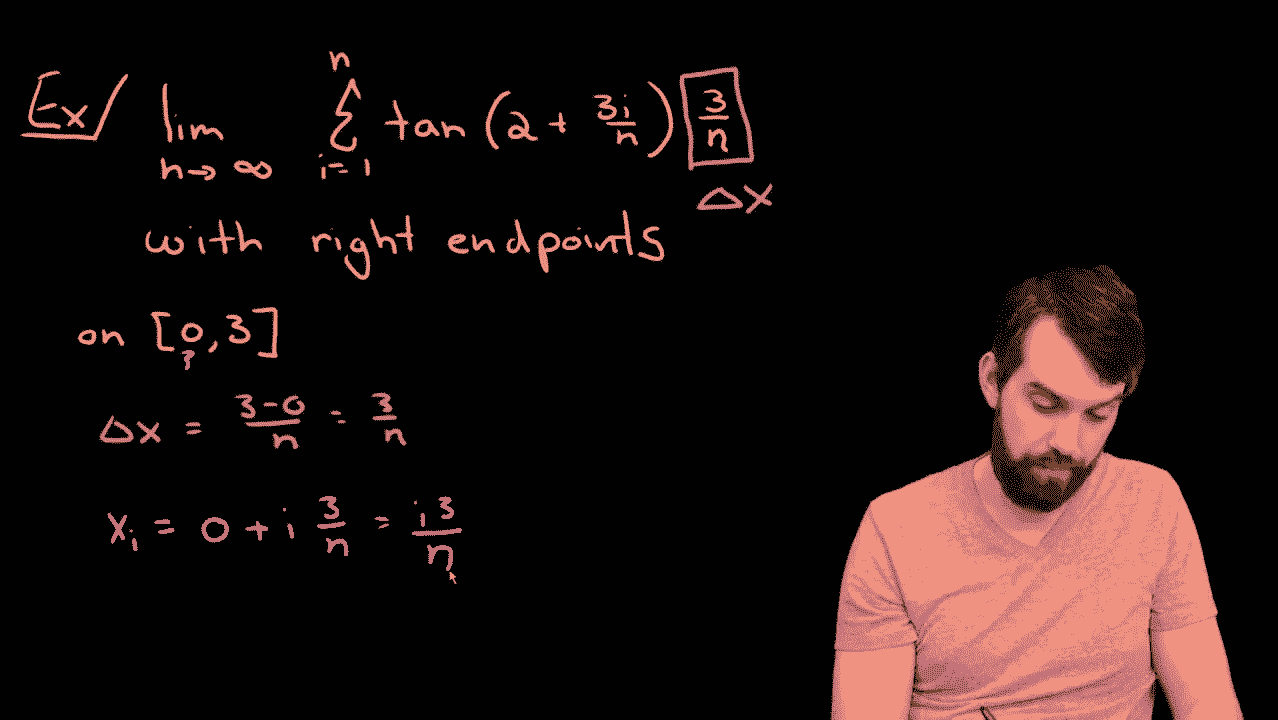 Ex/ lim n→∞ n Σ i=1 tan (2 + 3i/n) 3/n
Δx
with right endpoints
on [0,3]
?
Δx = 3-0/n = 3/n
xi = 0 + i 3/n = i3/n